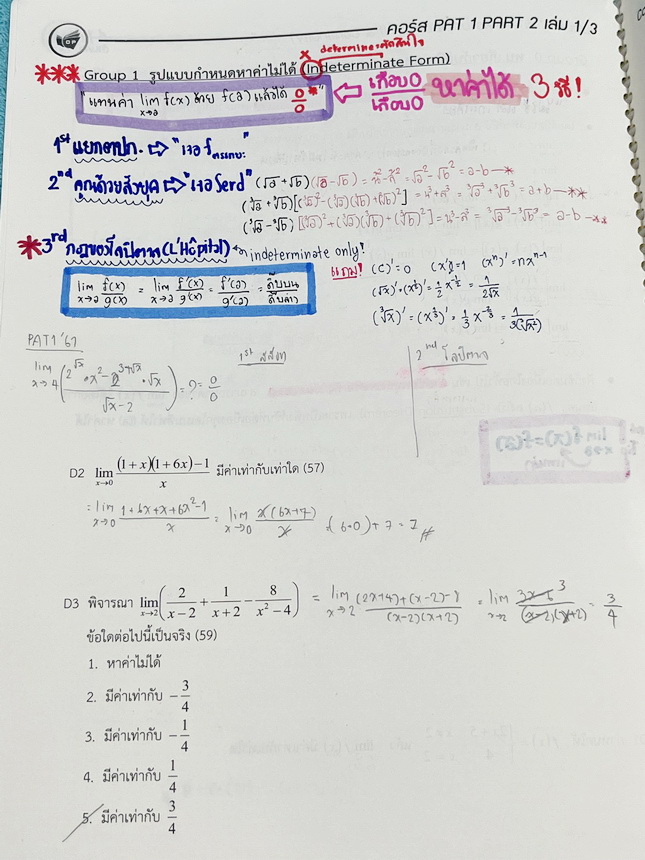 คอร์ส PAT 1 PART 2 เล่ม 1/3
*** Group 1 รูปแบบกำหนดหาค่าไม่ได้ (Indeterminate Form)
"แทนค่า lim x→a f(x) ด้วย f(a) แล้วได้ 0/0" ⇐ เกือบ0/เกือบ0 หาค่าได้ 3 วิธี!
1st แยกตปก. ⇨ "เจอ f ตรรกยะ"
2nd คูณด้วยสังยุค ⇨ "เจอ รูท" (√a + √b)(√a − √b) = น² − ล² = √a² − √b² = a − b *
(∛a + ∛b)[(∛a)² − (∛a)(∛b) + (∛b)²] = น³ + ล³ = ∛a³ + ∛b³ = a + b **
(∛a − ∛b)[(∛a)² + (∛a)(∛b) + (∛b)²] = น³ − ล³ = ∛a³ − ∛b³ = a − b **
*3rd กฎของโลปิตาล (L'Hôpital) indeterminate only!
lim x→a f(x)/g(x) = lim x→a f'(x)/g'(x) = f'(a)/g'(a) = ดิ๊ฟบน/ดิ๊ฟล่าง
แถม! (c)' = 0 (x)' = 1 (xⁿ)' = nxⁿ⁻¹
(√x)' = (x^½)' = ½ x^-½ = 1/(2√x)
(∛x)' = (x^⅓)' = ⅓ x^-⅔ = 1/(3(∛x²))
lim x→4 √x − 2 = ? = 0/0
1st สังยุค
2nd โลปิตาล
D2 lim x→0 ((1 + x)(1 + 6x) − 1)/x มีค่าเท่ากับเท่าใด (57)
= lim x→0 (1 + 6x + x + 6x² − 1)/x = lim x→0 x(6x + 7)/x = (6·0) + 7 = 7 #
D3 พิจารณา lim x→2 (2/(x − 2) + 1/(x + 2) − 8/(x² − 4)) = lim x→2 ((2x+4) + (x−2) − 8)/((x−2)(x+2)) = lim x→2 (3x − 6)/((x−2)(x+2)) = 3/4
ข้อใดต่อไปนี้เป็นจริง (59)
1. หาค่าไม่ได้
2. มีค่าเท่ากับ −3/4
3. มีค่าเท่ากับ −1/4
4. มีค่าเท่ากับ 1/4
5. มีค่าเท่ากับ 3/4